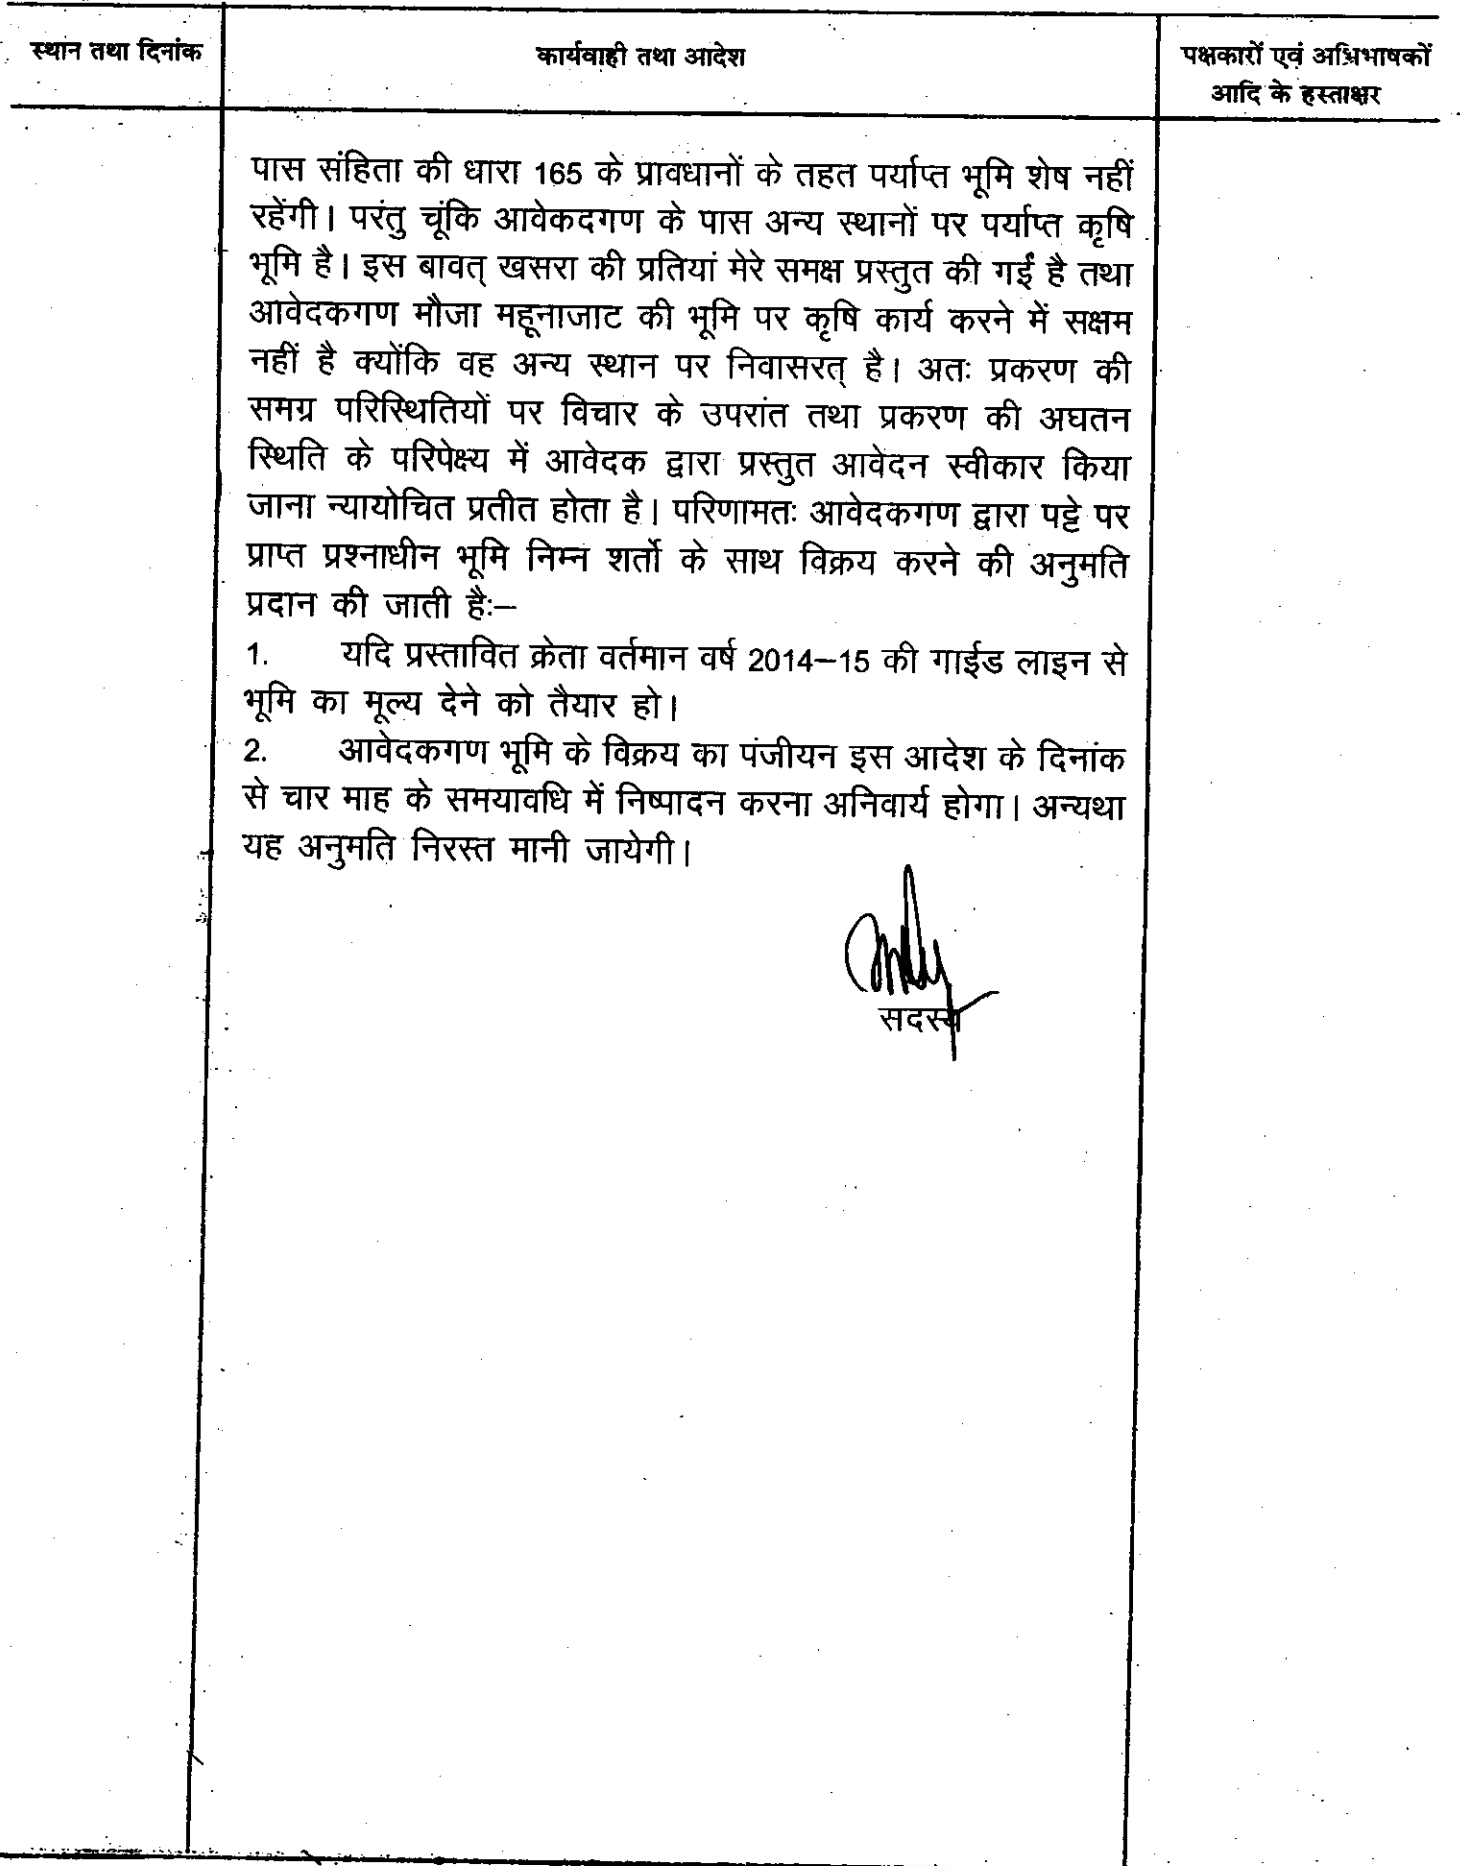 स्थान तथा दिनांक
कार्यवाही तथा आदेश
पक्षकारों एवं अभिभाषकों
आदि के हस्ताक्षर
पास संहिता की धारा 165 के प्रावधानों के तहत पर्याप्त भूमि शेष नहीं
रहेंगी। परंतु चूंकि आवेकदगण के पास अन्य स्थानों पर पर्याप्त कृषि
भूमि है। इस बावत् खसरा की प्रतियां मेरे समक्ष प्रस्तुत की गईं है तथा
आवेदकगण मौजा महूनाजाट की भूमि पर कृषि कार्य करने में सक्षम
नहीं है क्योंकि वह अन्य स्थान पर निवासरत् है। अतः प्रकरण की
समग्र परिस्थितियों पर विचार के उपरांत तथा प्रकरण की अघतन
स्थिति के परिपेक्ष्य में आवेदक द्वारा प्रस्तुत आवेदन स्वीकार किया
जाना न्यायोचित प्रतीत होता है। परिणामतः आवेदकगण द्वारा पट्टे पर
प्राप्त प्रश्नाधीन भूमि निम्न शर्तो के साथ विक्रय करने की अनुमति
प्रदान की जाती हैः–
1. यदि प्रस्तावित क्रेता वर्तमान वर्ष 2014–15 की गाईड लाइन से
भूमि का मूल्य देने को तैयार हो।
2. आवेदकगण भूमि के विक्रय का पंजीयन इस आदेश के दिनांक
से चार माह के समयावधि में निष्पादन करना अनिवार्य होगा। अन्यथा
यह अनुमति निरस्त मानी जायेगी।
सदस्य